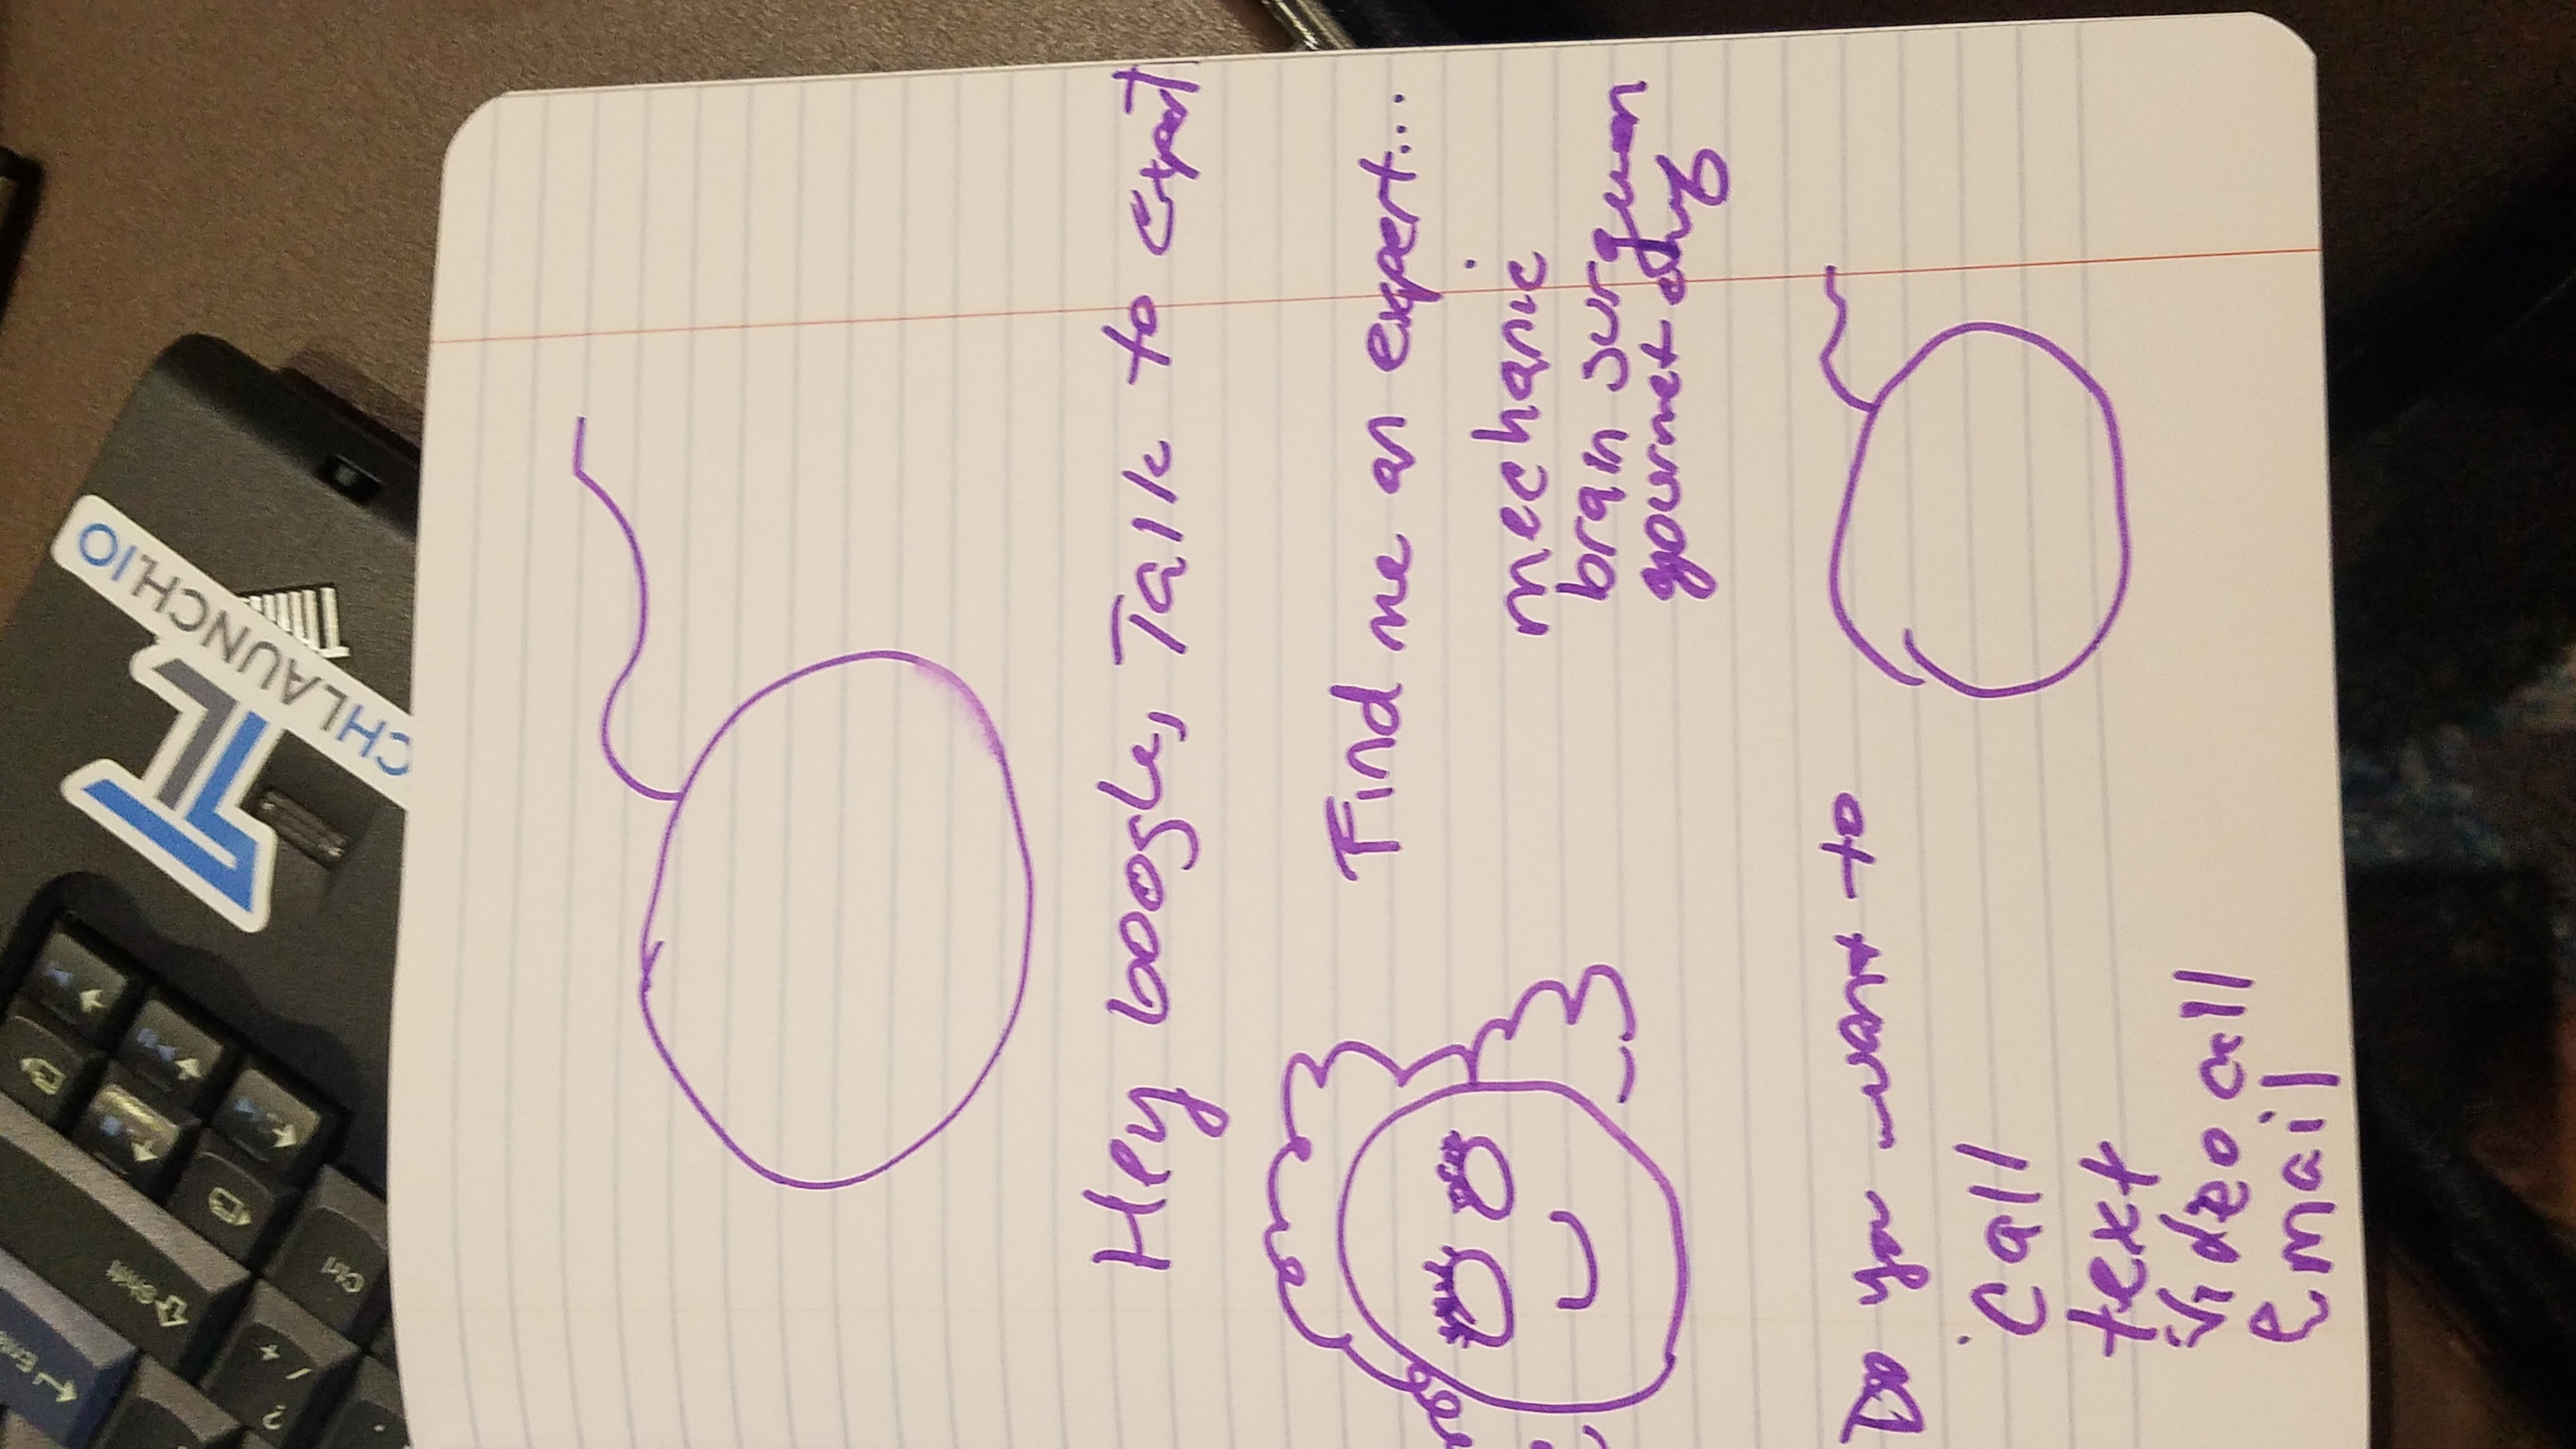 Hey Google, Talk to expert
Find me an expert...
mechanic
brain surgeon
gourmet
Do you want to
call
text
video call
email
? /
Shift
Ctrl
TL
CHLAUNCH.IO